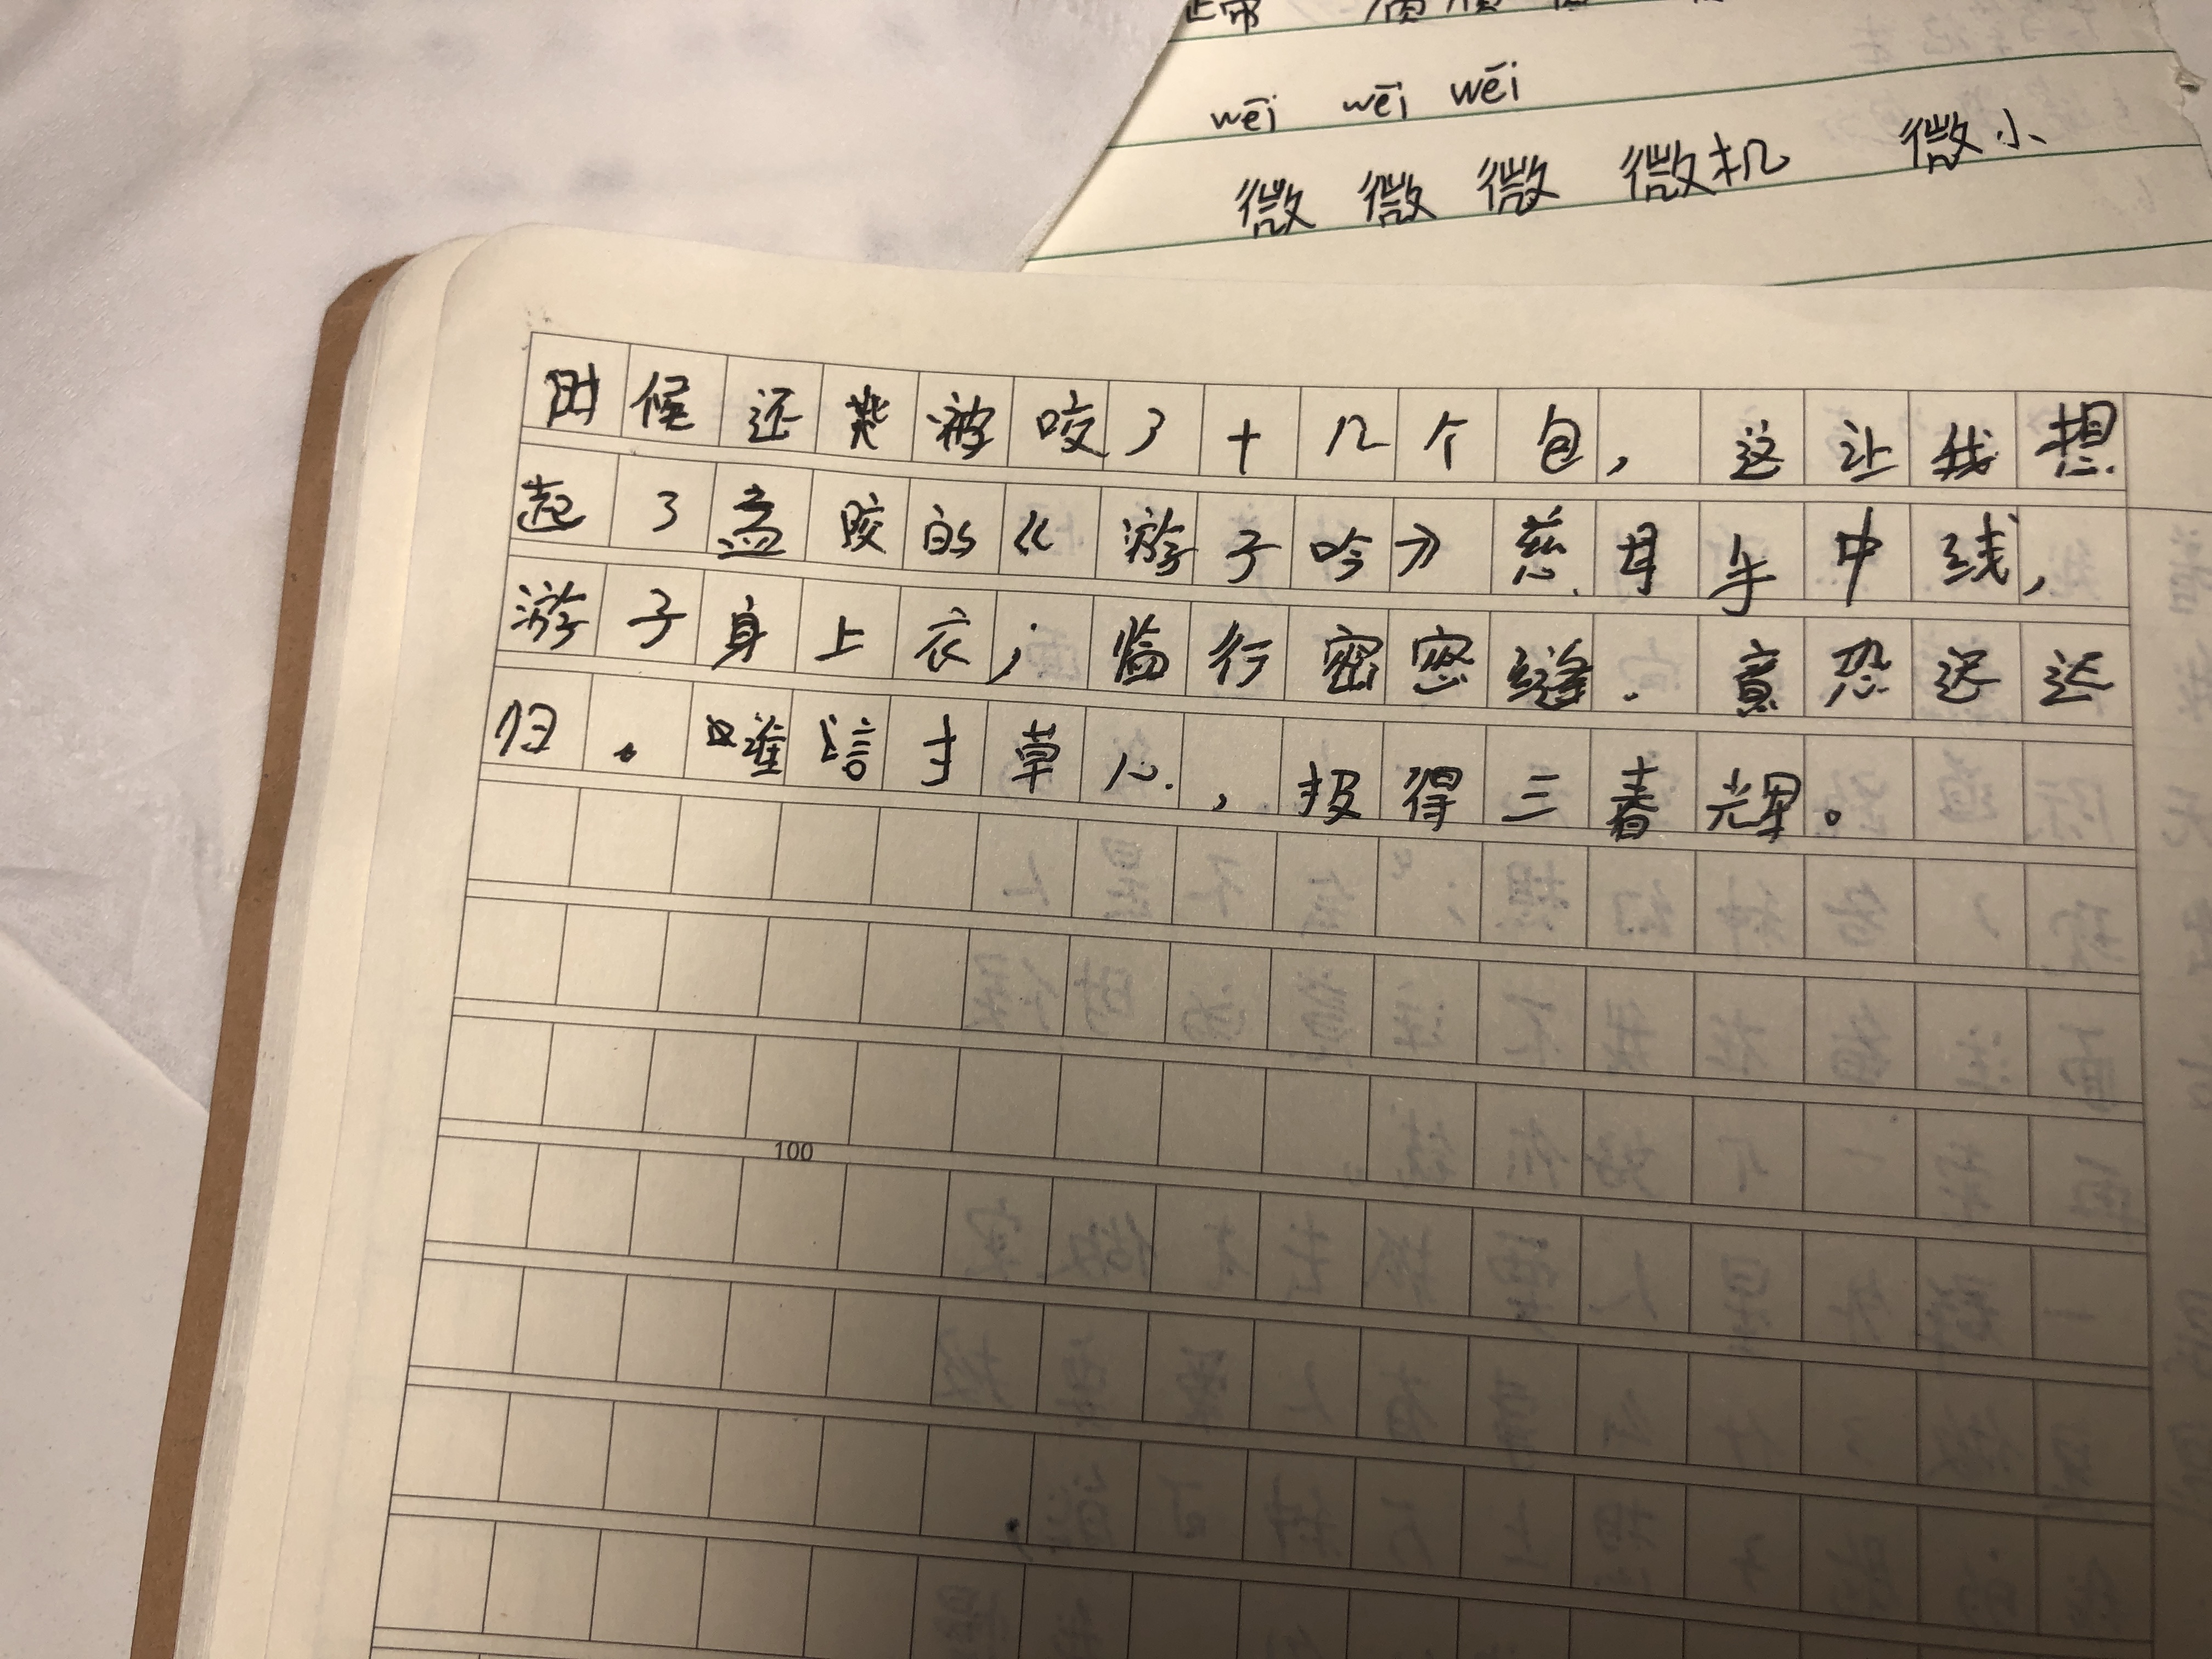 wēi wēi wēi
微 微 微 微机 微小
时候还类被咬了十几个包，这让我想
起了孟胶的《游子吟》慈母手中线，
游子身上衣；临行密密缝．意恐迟迟
归。唯信寸草心，报得三春辉。
100